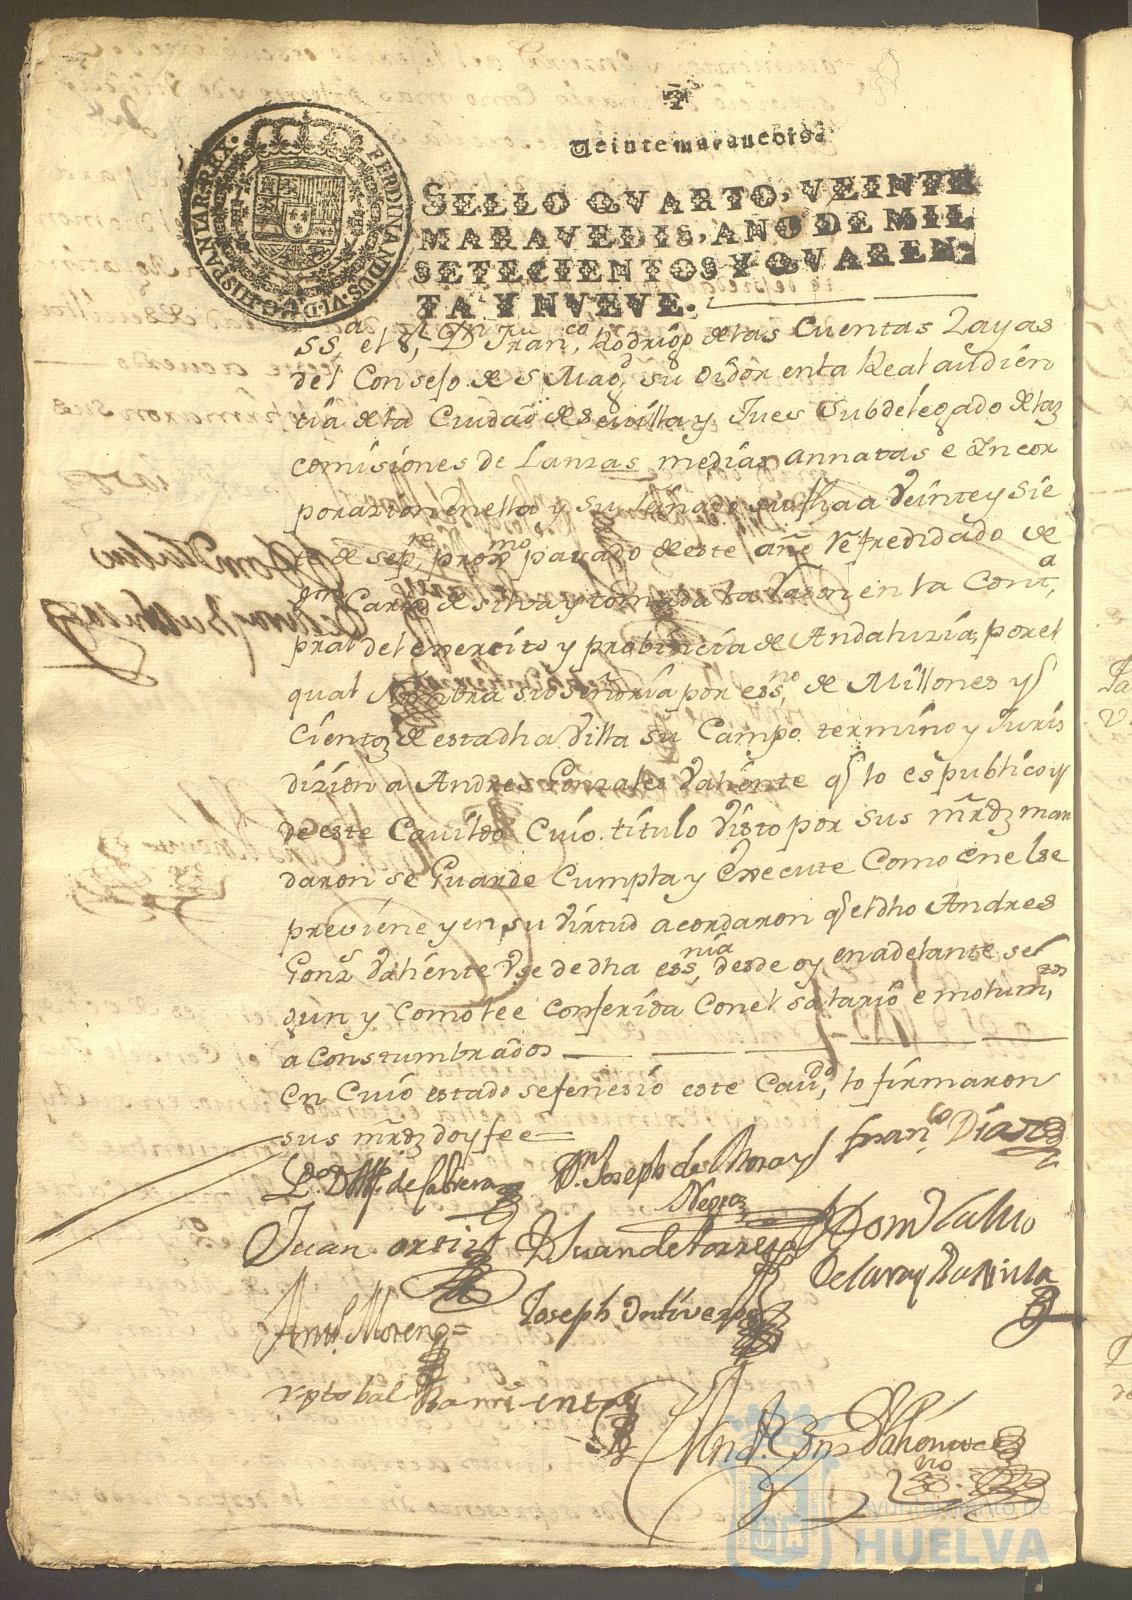 Veinte maravedis
SELLO QVARTO, VEINTE
MARAVEDIS, AÑO DE MIL
SETECIENTOS Y QVAREN-
TA Y NVEVE.
FERDINANDUS·VI·D·G·HISPANIAR·REX·
SSª, el Sr. Dn Franco, Rodrigz de las Cuentas Zayas
del Consejo de S Magd, su oidor en la Real audien
cia de la Ciudad de Sevilla y Jues Subdelegado de las
comisiones de Lanzas medias annatas e Incor
porazion en ella y su
te de sepre, proxmo pasado de este año refredidado de
Dn Carlos de silva y tomada la razon en la Contª,
pral del exercito y probincia de Andaluzia, por el
qual Nombra su señoria por essno, de Millones y
Cientos de esta dha Villa su Campo termino y Juris
dizion a Andres Gonzales Valiente q lo es publico y
de este Cavildo Cuio titulo Visto por sus mrdz man
daron se Guarde Cumpla y Execute Como en el se
previene y en su Virtud acordaron q el dho Andres
Gonz Valiente Vse de dha essnia, desde oy en adelante se
gun y Como le e Conferida Con el salario e molumtos,
a Constumbrados
En Cuio estado se fenesio este Cavdo, lo firmaron
sus mrdz doy fee=
Ldo. D de Cabrera
Dn. Joseph de Mora y
Negro
Franco Diaz
Juan ortiz
D Juan de torres
Dom
Anto. Moreno=
Joseph Ontiveros
xptobal Barrientos
Andr. Gonz Valiente
Ayuntamiento de
HUELVA